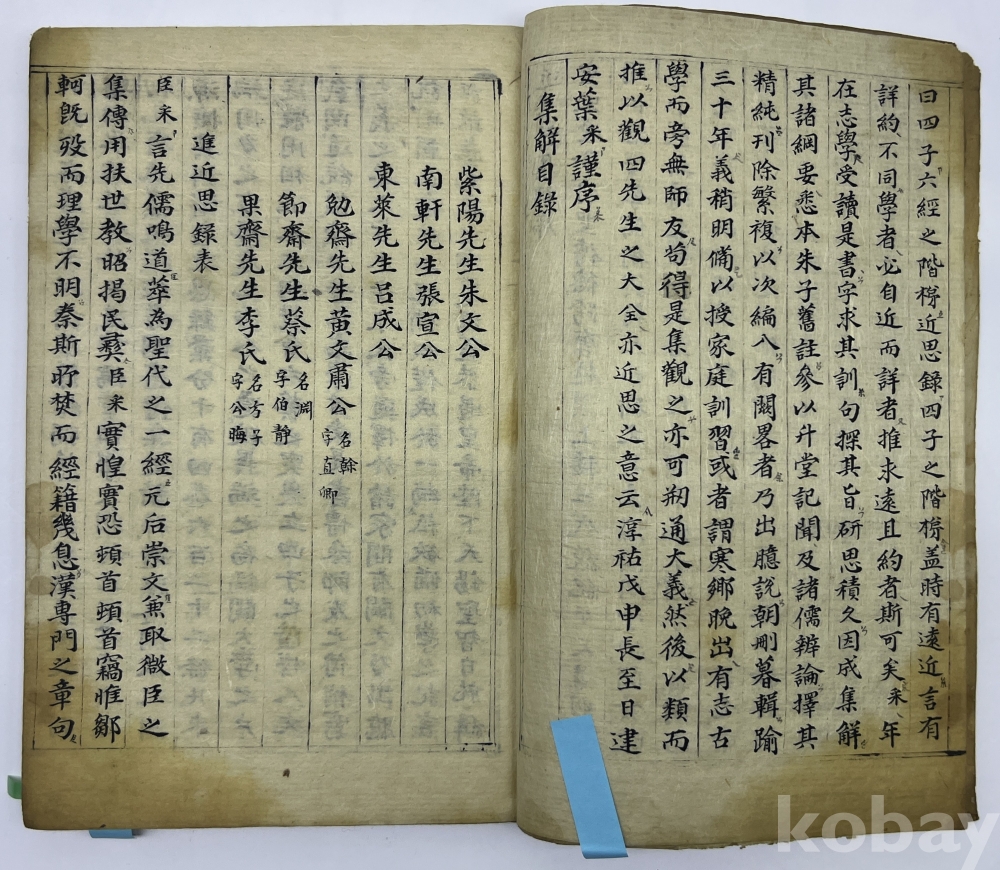 曰四子六經之階梯近思錄四子之階梯盖時有遠近言有
詳約不同學者必自近而詳者推求遠且約者斯可矣采年
在志學受讀是書字求其訓句探其旨研思積久因成集解
其諸綱要悉本朱子舊註參以升堂記聞及諸儒辨論擇其
精純刊除繁複以次編入有闕畧者乃出臆說朝刪暮輯踰
三十年義稍明備以授家庭訓習或者謂寒鄉晩出有志古
學而旁無師友苟得是集觀之亦可刱通大義然後以類而
推以觀四先生之大全亦近思之意云淳祐戊申長至日建
安葉采謹序
集解目錄
紫陽先生朱文公
南軒先生張宣公
東萊先生呂成公
勉齋先生黃文肅公 名榦 字直卿
節齋先生蔡氏 名淵 字伯静
果齋先生李氏 名方子 字公晦
進近思录表
臣采言先儒鳴道萃為聖代之一經元后崇文兼取微臣之
集傳用扶世教昭揭民彝臣采實惶實恐頓首頓首竊惟鄒
軻旣歿而理學不明秦斯所焚而經籍幾息漢專門之章句
kobay